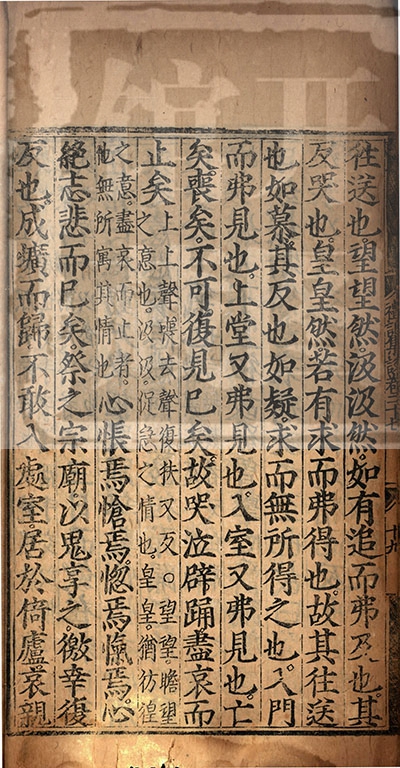 往送也望望然汲汲然如有追而弗及也其
反哭也皇皇然若有求而弗得也故其往送
也如慕其反也如疑求而無所得之也入門
而弗見也上堂又弗見也入室又弗見也亡
矣喪矣不可復見已矣故哭泣辟踊盡哀而
止矣
上上聲喪去聲復扶又反○望望瞻望
之意也汲汲促急之情也皇皇猶彷徨
之意盡哀而止者
他無所寓其情也
心悵焉愴焉惚焉愾焉心
絕志悲而已矣祭之宗廟以鬼享之徼幸復
反也成壙而歸不敢入處室居於倚廬哀親